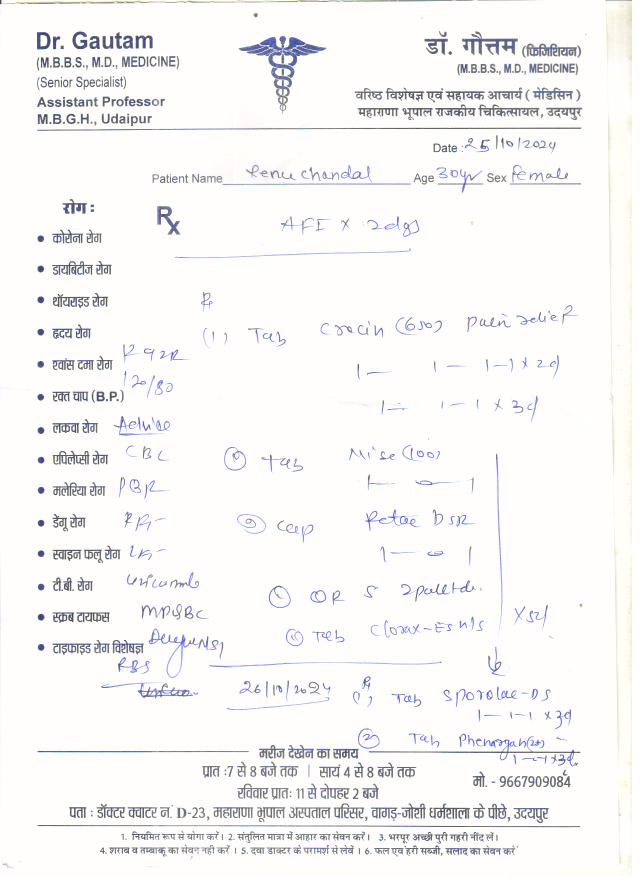 Dr. Gautam
(M.B.B.S., M.D., MEDICINE)
(Senior Specialist)
Assistant Professor
M.B.G.H., Udaipur
डॉ. गौत्तम (फिजिशियन)
(M.B.B.S., M.D., MEDICINE)
वरिष्ठ विशेषज्ञ एवं सहायक आचार्य ( मेडिसिन )
महाराणा भूपाल राजकीय चिकित्सायल, उदयपुर
Date : 25/10/2024
Patient Name Renu Chandal Age 30yr Sex Female
रोग :
Rx
AFI x 2dys
• कोरोना रोग
• डायबिटीज रोग
• थॉयराइड रोग
• हृदय रोग
(1) Tab Crocin (650) Pain relief
• श्वांस दमा रोग
1 — 1 — 1-1 x 2d
• रक्त चाप (B.P.) 120/80
1 — 1-1 x 3d
• लकवा रोग Advice
• एपिलेप्सी रोग CBC
Tab (100)
1 — 0 — 1
• मलेरिया रोग PBR
• डेंगू रोग RFT
Cap DSR
1 — 0 1
• स्वाइन फलू रोग LFT
• टी.बी. रोग
ORS
• स्क्रब टायफस MP QBC
Tab x5d
• टाइफाइड रोग विशेषज्ञ Dengue NS1
RBS
26/10/2024 (1) Tab Sporolac-DS
1-1-1 x 3d
(2) Tab Phenergan
1-1-1 x 3d
मरीज देखेन का समय
प्रात :7 से 8 बजे तक | सायं 4 से 8 बजे तक
मो. - 9667909084
रविवार प्रातः 11 से दोपहर 2 बजे
पता : डॉक्टर क्वाटर नं. D-23, महाराणा भूपाल अस्पताल परिसर, वागड़-जोशी धर्मशाला के पीछे, उदयपुर
1. नियमित रूप से योगा करें। 2. संतुलित मात्रा में आहार का सेवन करें। 3. भरपूर अच्छी पुरी गहरी नींद लें।
4. शराब व तम्बाकू का सेवन नही करें । 5. दवा डाक्टर के परामर्श से लेवें । 6. फल एवं हरी सब्जी, सलाद का सेवन करें